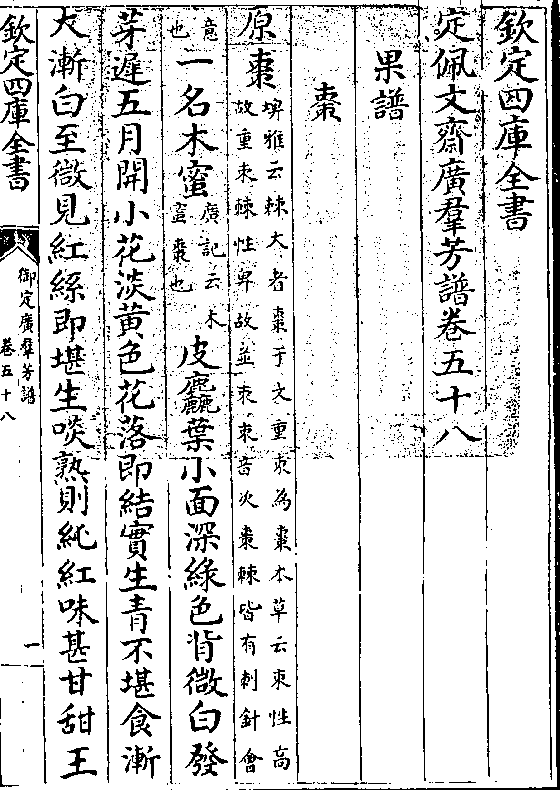 欽定四庫全書
定佩文齋廣羣芳譜卷五十八
果譜
棗
原棗埤雅云棘大者棗于文重朿為棗本草云朿性高
故重朿棘性卑故並朿朿音次棗棘皆有刺針會
意
也一名木蜜廣記云木
蜜棗也皮麤葉小面深綠色背微白發
芽遲五月開小花淡黃色花落即結實生青不堪食漸
大漸白至微見紅絲即堪生啖熟則純紅味甚甘甜王
欽定四庫全書
御定廣羣芳譜
卷五十八
一